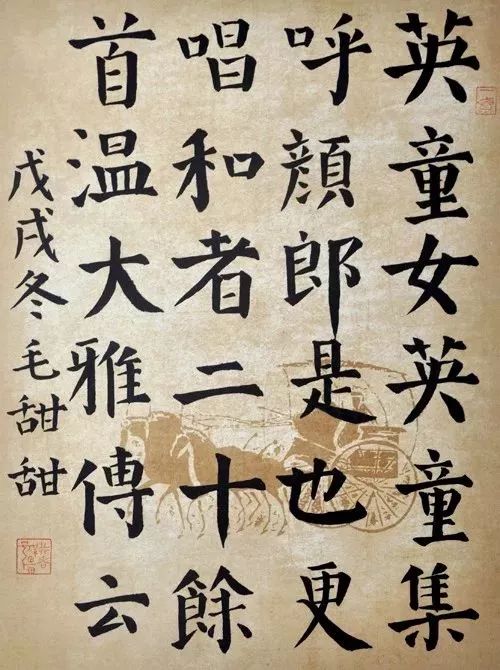 英童女英童集
呼顔郎是也更
唱和者二十餘
首温大雅傳云
戊戌冬毛甜甜